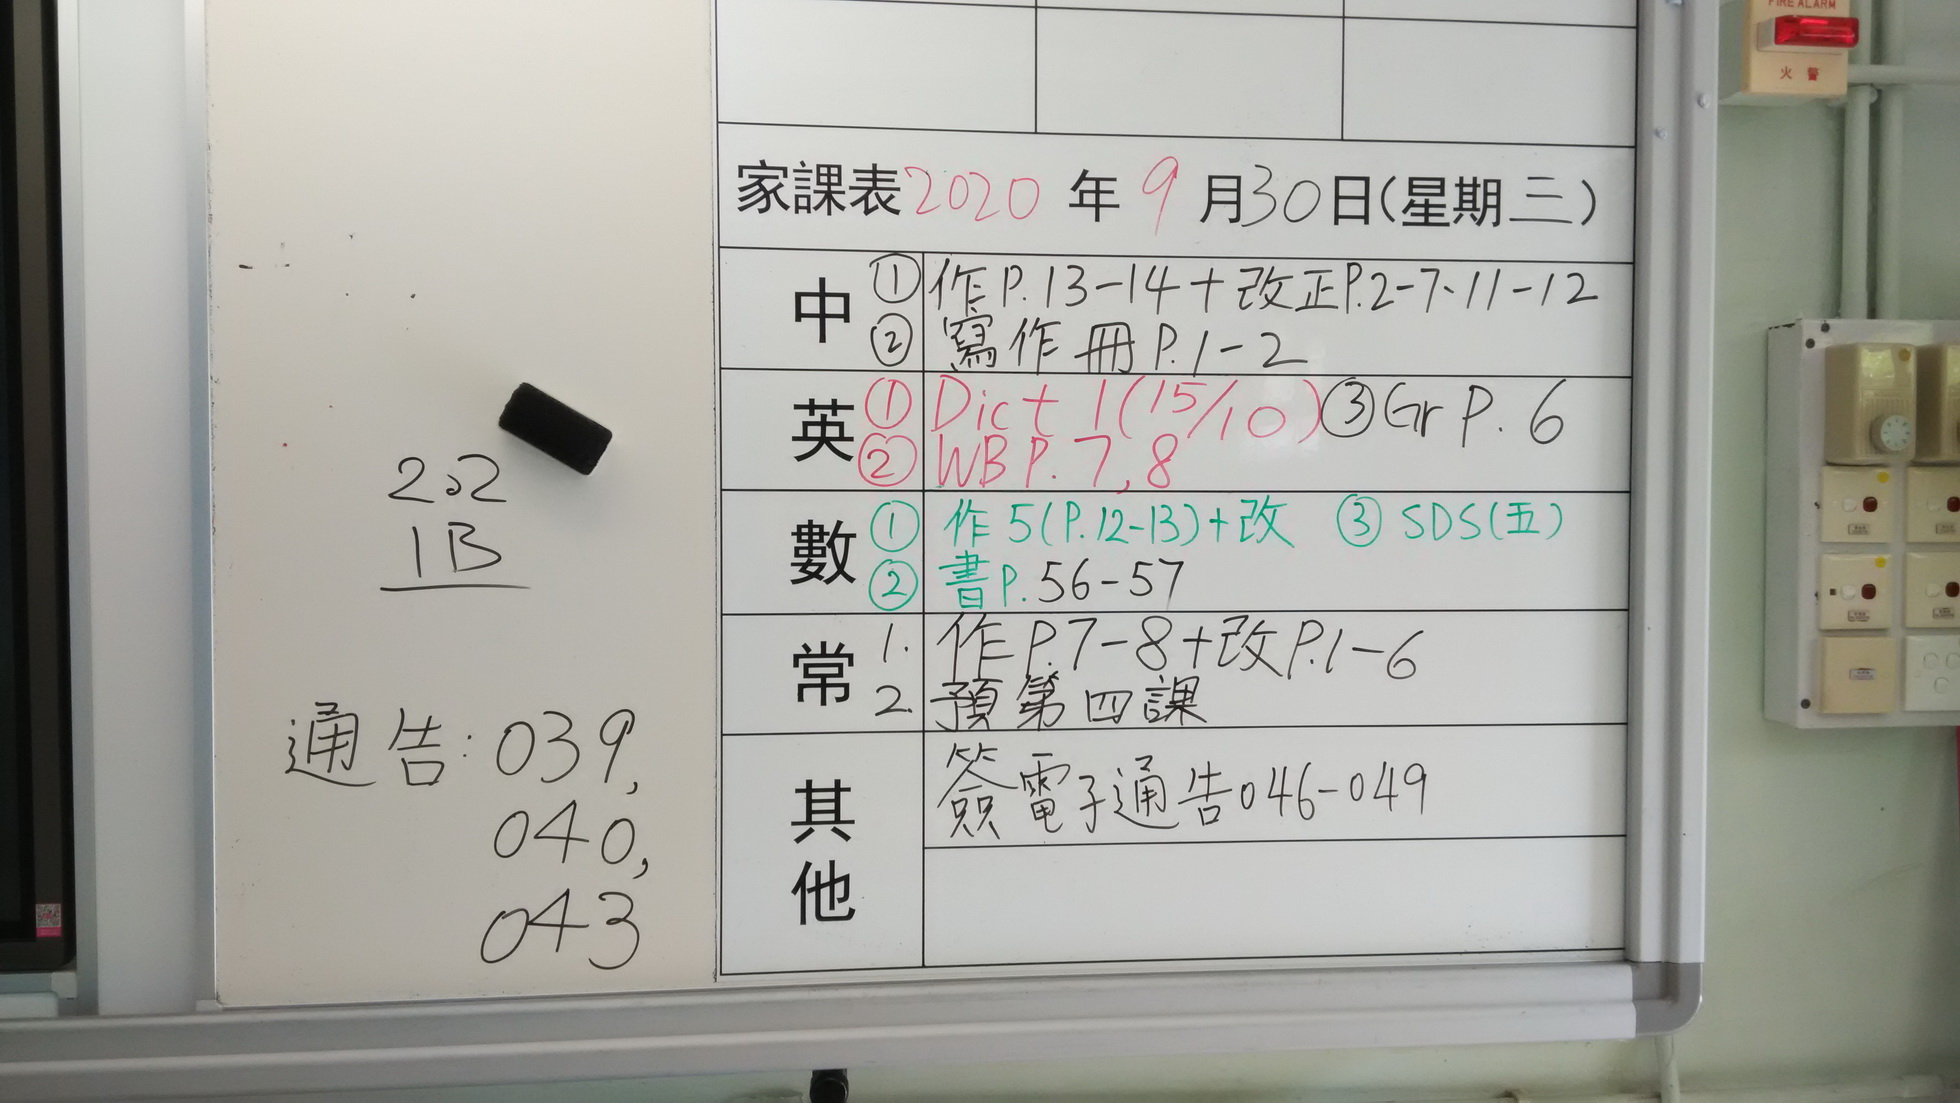 FIRE ALARM
火警
家課表2020年9月30日(星期三)
中
① 作P.13-14+改正P.2-7、11-12
② 寫作冊P.1-2
英
① Dict 1(15/10) ③Gr P.6
② WB P.7,8
數
① 作5(P.12-13)+改 ③ SDS(五)
② 書P.56-57
常
1. 作P.7-8+改P.1-6
2. 預第四課
其他
簽電子通告046-049
1B
通告:039,
040,
043